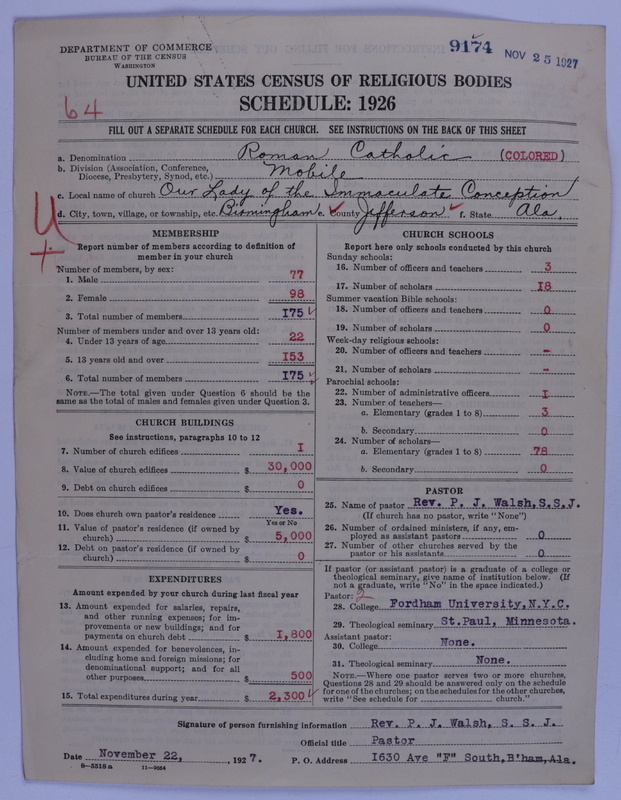 DEPARTMENT OF COMMERCE
BUREAU OF THE CENSUS
WASHINGTON
9174
NOV 25 1927
UNITED STATES CENSUS OF RELIGIOUS BODIES
SCHEDULE: 1926
64
FILL OUT A SEPARATE SCHEDULE FOR EACH CHURCH. SEE INSTRUCTIONS ON THE BACK OF THIS SHEET
a. Denomination Roman Catholic (COLORED)
b. Division (Association, Conference, Diocese, Presbytery, Synod, etc.) Mobile
c. Local name of church Our Lady of the Immaculate Conception
d. City, town, village, or township, etc. Birmingham e. County Jefferson f. State Ala.
MEMBERSHIP
Report number of members according to definition of
member in your church
Number of members, by sex:
1. Male 77
2. Female 98
3. Total number of members 175
Number of members under and over 13 years old:
4. Under 13 years of age 22
5. 13 years old and over 153
6. Total number of members 175
NOTE.—The total given under Question 6 should be the
same as the total of males and females given under Question 3.
CHURCH BUILDINGS
See instructions, paragraphs 10 to 12
7. Number of church edifices I
8. Value of church edifices $ 30,000
9. Debt on church edifices $ 0
10. Does church own pastor's residence Yes.
Yes or No
11. Value of pastor's residence (if owned by
church) $ 5,000
12. Debt on pastor's residence (if owned by
church) $ 0
EXPENDITURES
Amount expended by your church during last fiscal year
13. Amount expended for salaries, repairs,
and other running expenses; for im-
provements or new buildings; and for
payments on church debt $ I,800
14. Amount expended for benevolences, in-
cluding home and foreign missions; for
denominational support; and for all
other purposes $ 500
15. Total expenditures during year $ 2,300
CHURCH SCHOOLS
Report here only schools conducted by this church
Sunday schools:
16. Number of officers and teachers 3
17. Number of scholars I8
Summer vacation Bible schools:
18. Number of officers and teachers 0
19. Number of scholars 0
Week-day religious schools:
20. Number of officers and teachers -
21. Number of scholars -
Parochial schools:
22. Number of administrative officers I
23. Number of teachers—
a. Elementary (grades 1 to 8) 3
b. Secondary 0
24. Number of scholars—
a. Elementary (grades 1 to 8) 78
b. Secondary 0
PASTOR
25. Name of pastor Rev. P. J. Walsh,S.S.J.
(If church has no pastor, write "None")
26. Number of ordained ministers, if any, em-
ployed as assistant pastors 0
27. Number of other churches served by the
pastor or his assistants 0
If pastor (or assistant pastor) is a graduate of a college or
theological seminary, give name of institution below. (If
not a graduate, write "No" in the space indicated.)
Pastor: 2
28. College Fordham University,N.Y.C.
29. Theological seminary St.Paul, Minnesota.
Assistant pastor:
30. College None.
31. Theological seminary None.
NOTE.—Where one pastor serves two or more churches,
Questions 28 and 29 should be answered only on the schedule
for one of the churches; on the schedules for the other churches,
write "See schedule for ______ church."
Signature of person furnishing information Rev. P. J. Walsh, S. S. J.
Official title Pastor
Date November 22, , 1927. P. O. Address I630 Ave "F" South,B'ham,Ala.
8—5518 a 11—9664